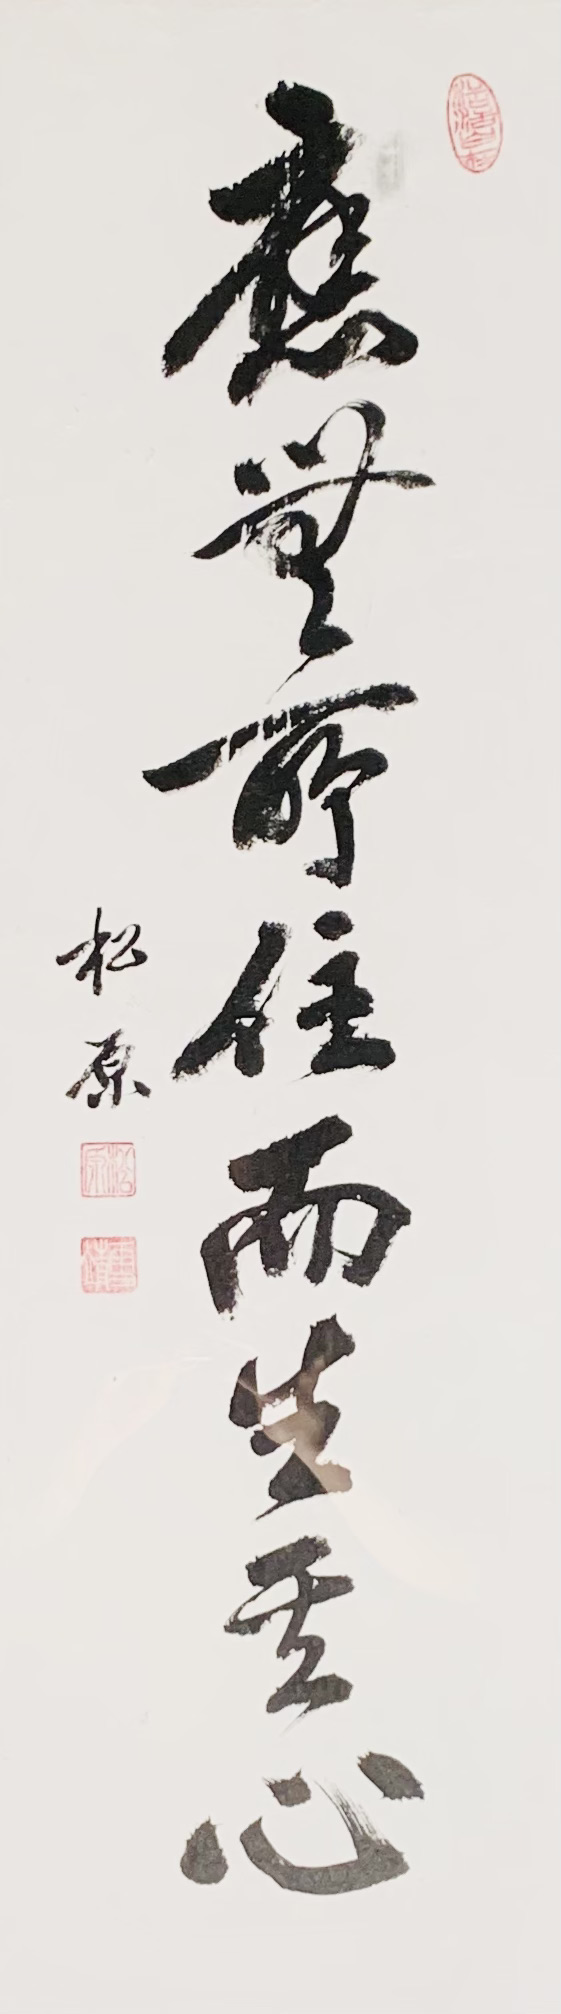 應無所住而生其心
松原